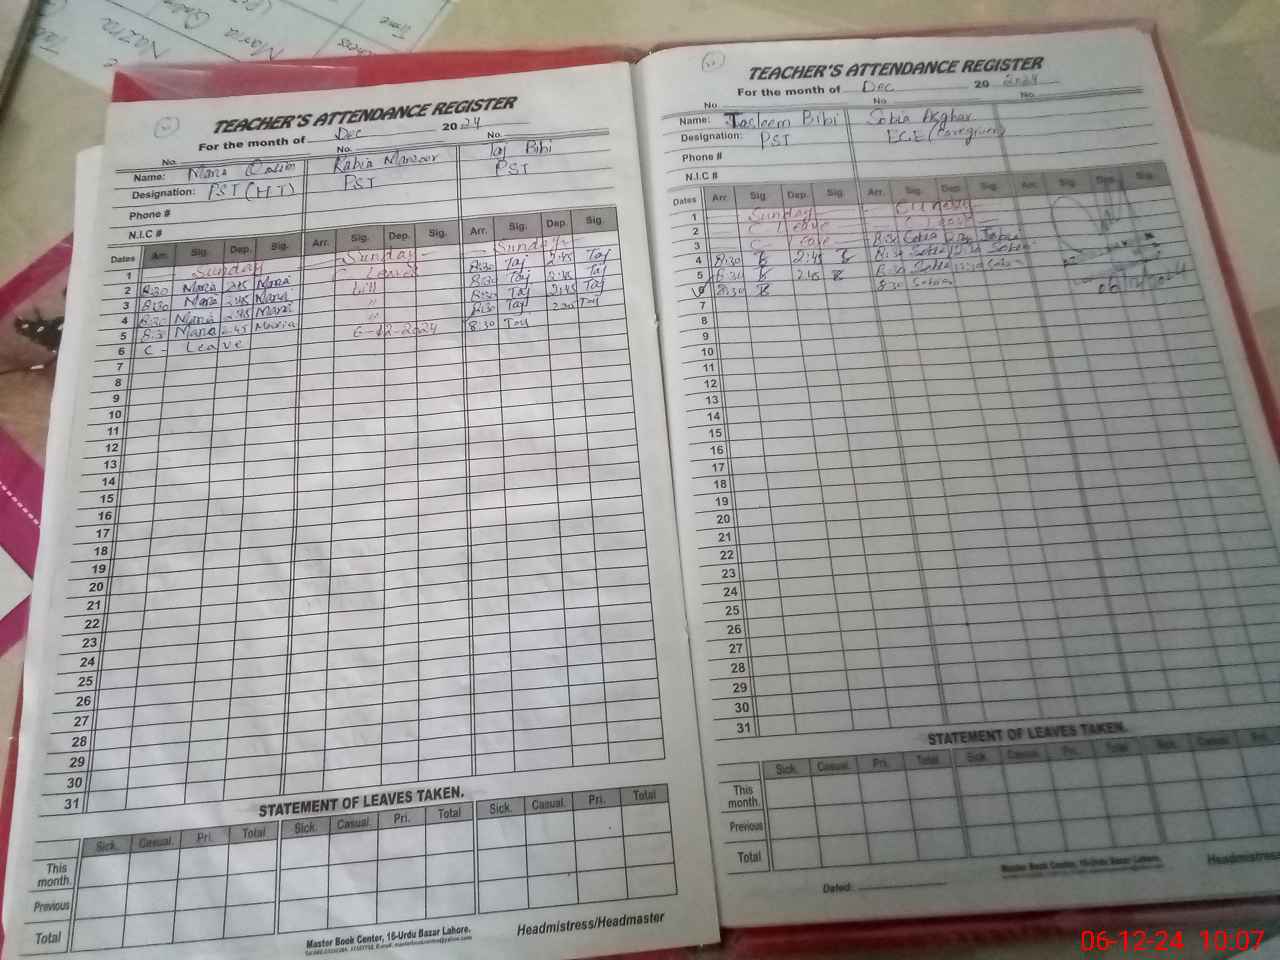 TEACHER'S ATTENDANCE REGISTER
For the month of Dec 2024
No. No. No.
Name: Maria Rabia Manzoor Taj Bibi
Designation: PST (HT) PST PST
Phone #
N.I.C #
Dates Arr. Sig. Dep. Sig. Arr. Sig. Dep. Sig. Arr. Sig. Dep. Sig.
1 Sunday Sunday Sunday
2 8:30 Maria 2:45 Maria C Leave 8:30 Taj 2:45 Taj
3 8:30 Maria 2:45 Maria till 8:30 Taj 2:45 Taj
4 8:30 Maria 2:45 Maria " 8:30 Taj 2:45 Taj
5 8:30 Maria 2:45 Maria " 8:30 Taj 2:30 Taj
6 C - Leave 6-12-2024 8:30 Taj
7
8
9
10
11
12
13
14
15
16
17
18
19
20
21
22
23
24
25
26
27
28
29
30
31
STATEMENT OF LEAVES TAKEN.
Sick. Casual. Pri. Total Sick. Casual. Pri. Total Sick. Casual. Pri. Total
This month.
Previous
Total
Master Book Center, 16-Urdu Bazar Lahore.
Headmistress/Headmaster
TEACHER'S ATTENDANCE REGISTER
For the month of Dec 2024
No No. No.
Name: Tasleem Bibi Sobia Asghar
Designation: PST ECE (Caregiver)
Phone #
N.I.C #
Dates Arr. Sig. Dep. Sig. Arr. Sig. Dep. Sig. Arr. Sig. Dep. Sig.
1 Sunday Sunday
2 C Leave C Leave
3 C- 8:30 Sobia Sobia
4 8:30 2:45 8:30 Sobia Sobia
5 8:30 2:45 8:30 Sobia Sobia
6 8:30 8:30 Sobia
7
8
9
10
11
12
13
14
15
16
17
18
19
20
21
22
23
24
25
26
27
28
29
30
31
STATEMENT OF LEAVES TAKEN.
Sick. Casual. Pri. Total Sick. Casual. Pri.
This month.
Previous
Total
Master Book Center, 16-Urdu Bazar Lahore.
Dated:
Headmistress
06-12-24 10:07